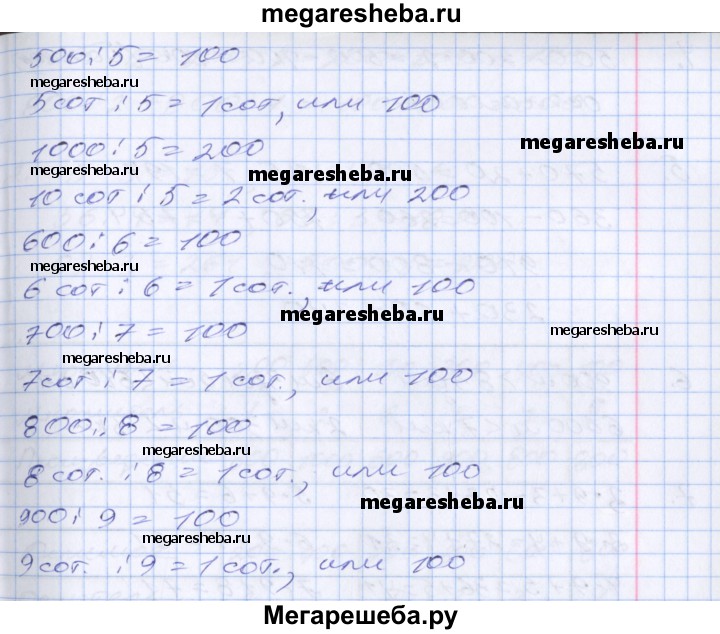 megaresheba.ru
500 : 5 = 100
megaresheba.ru
5 сот : 5 = 1 сот, или 100
megaresheba.ru
1000 : 5 = 200
megaresheba.ru
megaresheba.ru
10 сот : 5 = 2 сот., или 200
600 : 6 = 100
megaresheba.ru
6 сот : 6 = 1 сот., или 100
megaresheba.ru
700 : 7 = 100
megaresheba.ru
megaresheba.ru
7 сот : 7 = 1 сот., или 100
800 : 8 = 100
megaresheba.ru
8 сот. : 8 = 1 сот., или 100
megaresheba.ru
900 : 9 = 100
megaresheba.ru
9 сот. : 9 = 1 сот., или 100
Мегарешеба.ру